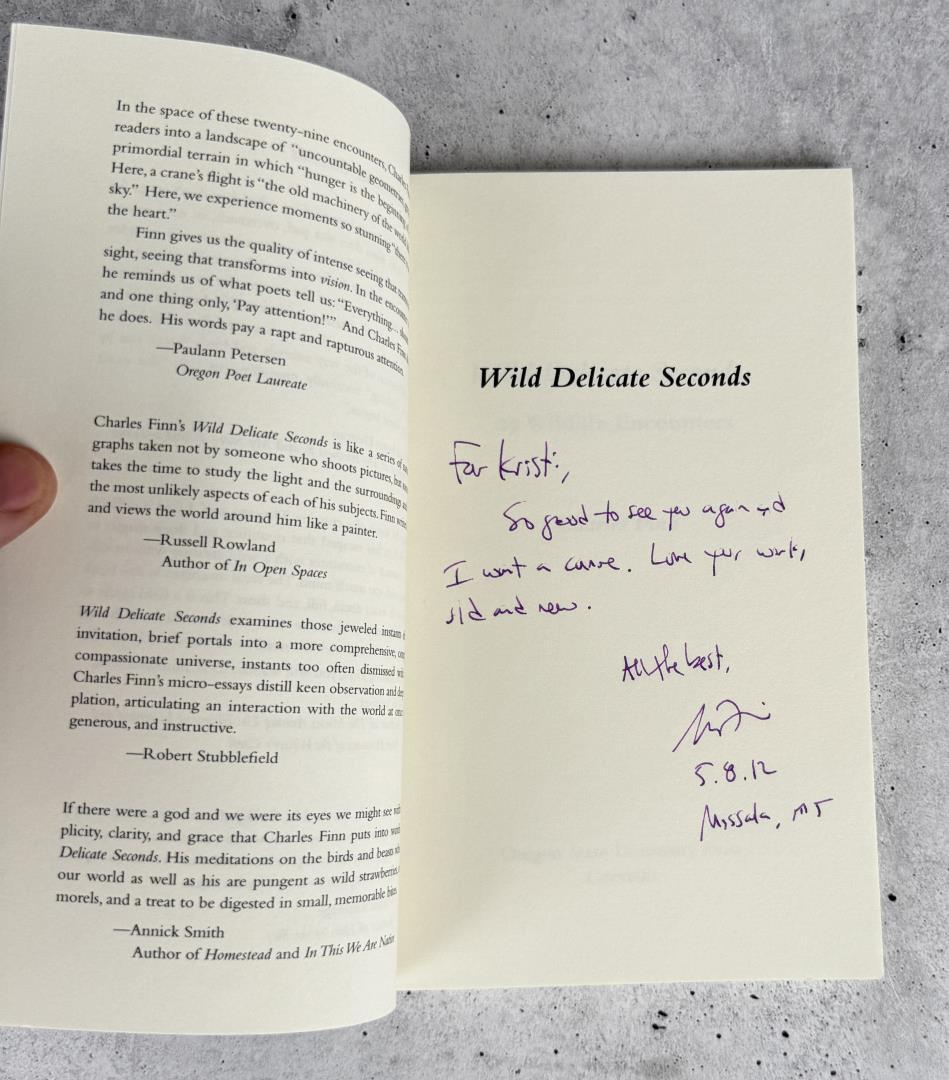 In the space of these twenty-nine encounters, Charles
readers into a landscape of "uncountable geometries,
primordial terrain in which "hunger is the beginning
Here, a crane's flight is "the old machinery of the world
sky." Here, we experience moments so stunning "
the heart."
Finn gives us the quality of intense seeing that
sight, seeing that transforms into vision. In the
he reminds us of what poets tell us: "Everything...
and one thing only, 'Pay attention!'" And Charles Finn
he does. His words pay a rapt and rapturous attention.
—Paulann Petersen
Oregon Poet Laureate
Charles Finn's Wild Delicate Seconds is like a series of
graphs taken not by someone who shoots pictures, but
takes the time to study the light and the surroundings
the most unlikely aspects of each of his subjects. Finn
and views the world around him like a painter.
—Russell Rowland
Author of In Open Spaces
Wild Delicate Seconds examines those jeweled instants
invitation, brief portals into a more comprehensive,
compassionate universe, instants too often dismissed
Charles Finn's micro-essays distill keen observation and
plation, articulating an interaction with the world at
generous, and instructive.
—Robert Stubblefield
If there were a god and we were its eyes we might see
plicity, clarity, and grace that Charles Finn puts into
Delicate Seconds. His meditations on the birds and beasts
our world as well as his are pungent as wild strawberries,
morels, and a treat to be digested in small, memorable bites.
—Annick Smith
Author of Homestead and In This We Are Native
Wild Delicate Seconds
29 Wildlife Encounters
For Kristi,
So good to see you again and
I want a canoe. Love your work,
old and new.
All the best,
5.8.12
Missoula, MT